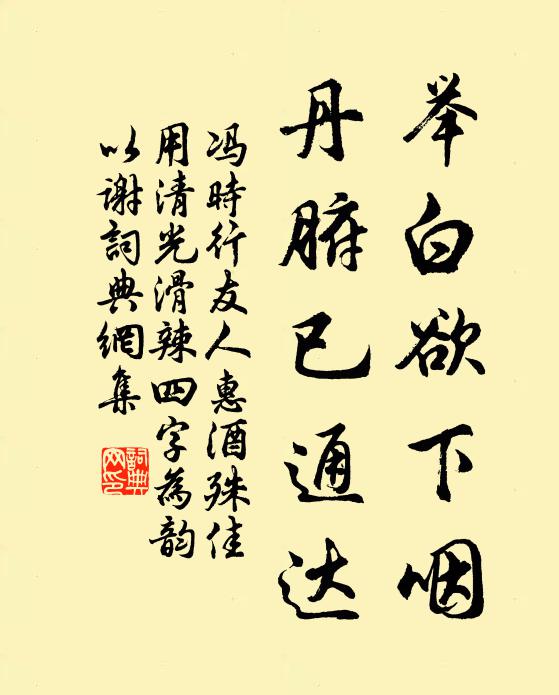 举白欲下咽
丹腑已通达
冯時行友人惠酒殊佳
用清光滑辣四字為韵
以谢詞典網集
詞典
网印